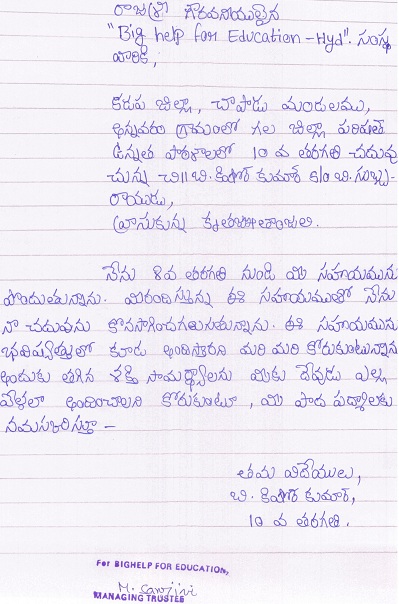 రాజశ్రీ గౌరవనీయులైన
"Big help for Education -Hyd". సంస్థ
వారికి,
కడప జిల్లా, చాపాడు మండలము,
అన్నవరం గ్రామంలో గల జిల్లా పరిషత్
ఉన్నత పాఠశాలలో 10 వ తరగతి చదువు
చున్న చి॥ బి. కిషోర్ కుమార్ S/o బి. సుబ్బ-
రాయుడు,
వ్రాసుకున్న కృతజ్ఞతాంజలి.
నేను 8వ తరగతి నుండి మీ సహాయమును
పొందుతున్నాను. మీరందిస్తున్న ఈ సహాయముతో నేను
నా చదువును కొనసాగించగలుగుతున్నాను. ఈ సహాయమును
భవిష్యత్తులో కూడా అందిస్తారని మరి మరి కోరుకుంటున్నాను
అందుకు తగిన శక్తి సామర్థ్యాలను మీకు దేవుడు ఎల్ల
వేళలా అందించాలని కోరుకుంటూ, మీ పాద పద్మాలకు
నమస్కరిస్తూ -
తమ విదేయులు,
బి. కిషోర్ కుమార్,
10 వ తరగతి.
For BIGHELP FOR EDUCATION,
M. Sarojini
MANAGING TRUSTEE